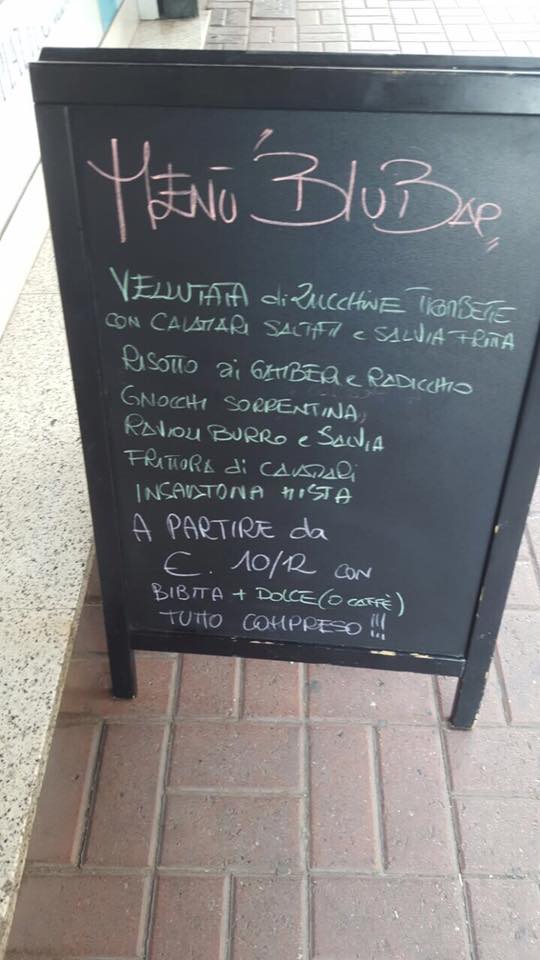 MENÙ "BLUBAR"
VELLUTATA di ZUCCHINE TROMBETTE
CON CALAMARI SALTATI e SALVIA FRITTA
RISOTTO ai GAMBERI e RADICCHIO
GNOCCHI SORRENTINA
RAVIOLI BURRO e SALVIA
FRITTURA di CALAMARI
INSALATONA MISTA
A PARTIRE da
€. 10/12 CON
BIBITA + DOLCE (O CAFFÈ)
TUTTO COMPRESO !!!